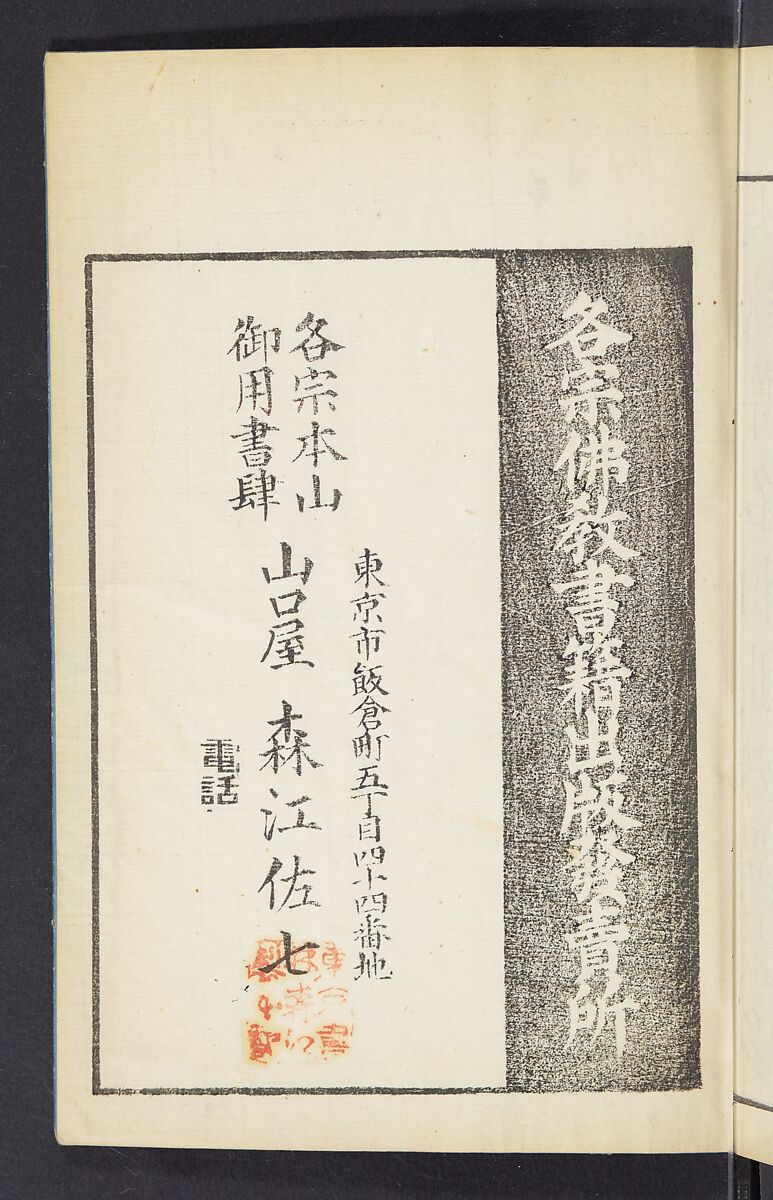 各宗佛教書籍出版發賣所
東京市飯倉町五丁目四十四番地
各宗本山
御用書肆
山口屋 森江佐七
電話